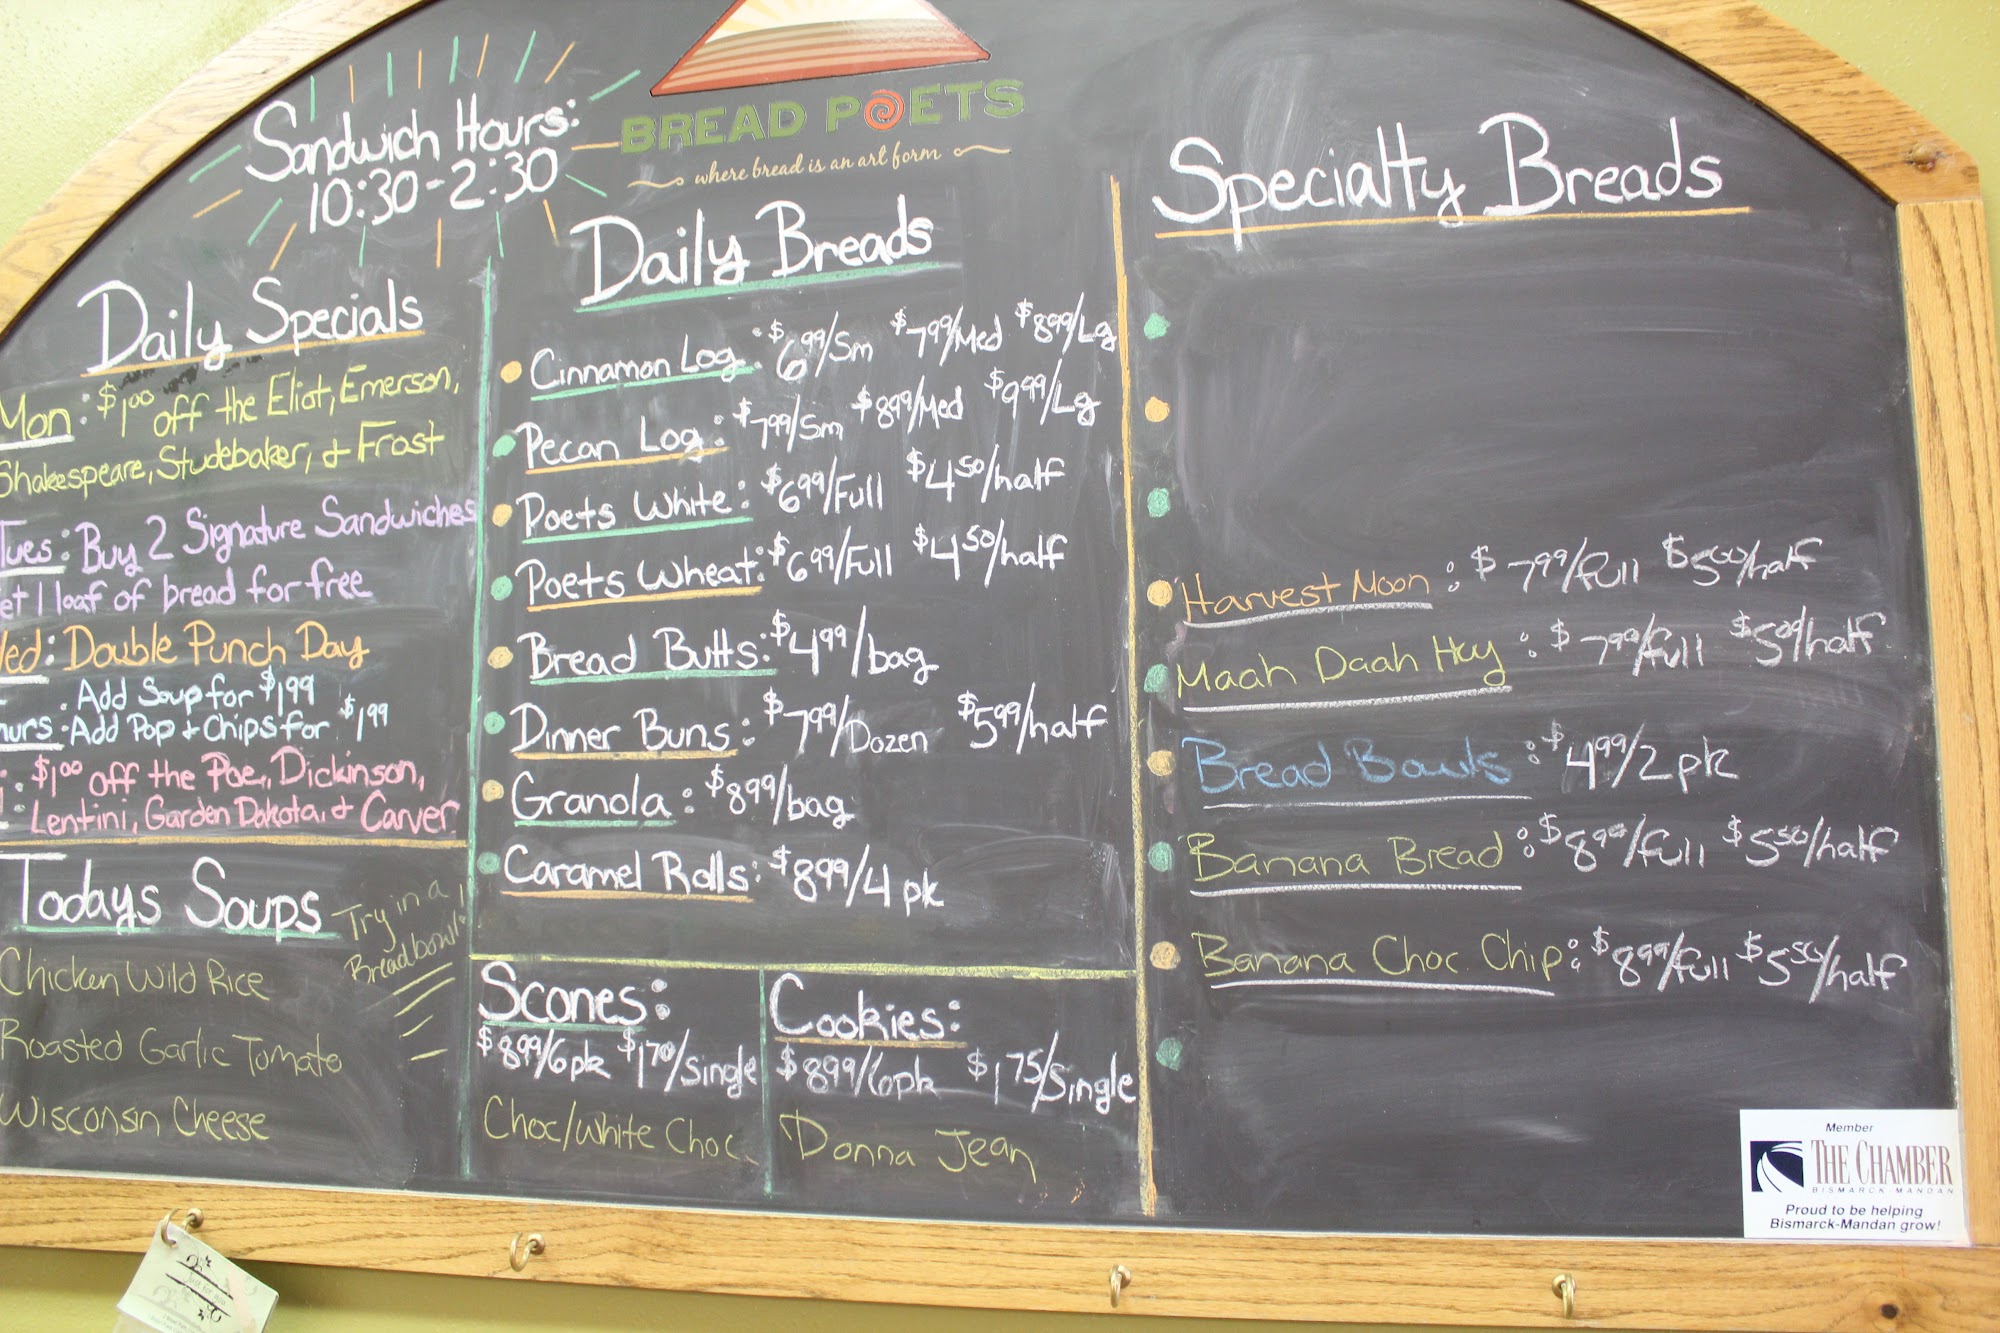 Sandwich Hours:
10:30-2:30
BREAD POETS
where bread is an art form
Daily Specials
Mon: $1.00 off the Eliot, Emerson,
Shakespeare, Studebaker, & Frost
Tues: Buy 2 Signature Sandwiches
et 1 loaf of bread for free
ed: Double Punch Day
. Add Soup for $1.99
hurs. Add Pop & Chips for $1.99
i: $1.00 off the Poe, Dickinson,
Lentini, Garden Dakota, & Carver
Todays Soups
Try in a
Breadbowl!
Chicken Wild Rice
Roasted Garlic Tomato
Wisconsin Cheese
Daily Breads
Cinnamon Log: $6.99/Sm $7.99/Med $8.99/Lg
Pecan Log: $7.99/Sm $8.99/Med $9.99/Lg
Poets White: $6.99/Full $4.50/half
Poets Wheat: $6.99/Full $4.50/half
Bread Butts: $4.99/bag
Dinner Buns: $7.99/Dozen $5.99/half
Granola: $8.99/bag
Caramel Rolls: $8.99/4 pk
Scones:
$8.99/6pk $1.70/Single
Choc/White Choc
Cookies:
$8.99/6pk $1.75/Single
Donna Jean
Specialty Breads
Harvest Moon: $7.99/full $5.00/half
Maah Daah Hey: $7.99/full $5.00/half
Bread Bowls: $4.99/2 pk
Banana Bread: $8.99/full $5.50/half
Banana Choc. Chip: $8.99/full $5.50/half
Member
THE CHAMBER
BISMARCK·MANDAN
Proud to be helping
Bismarck-Mandan grow!